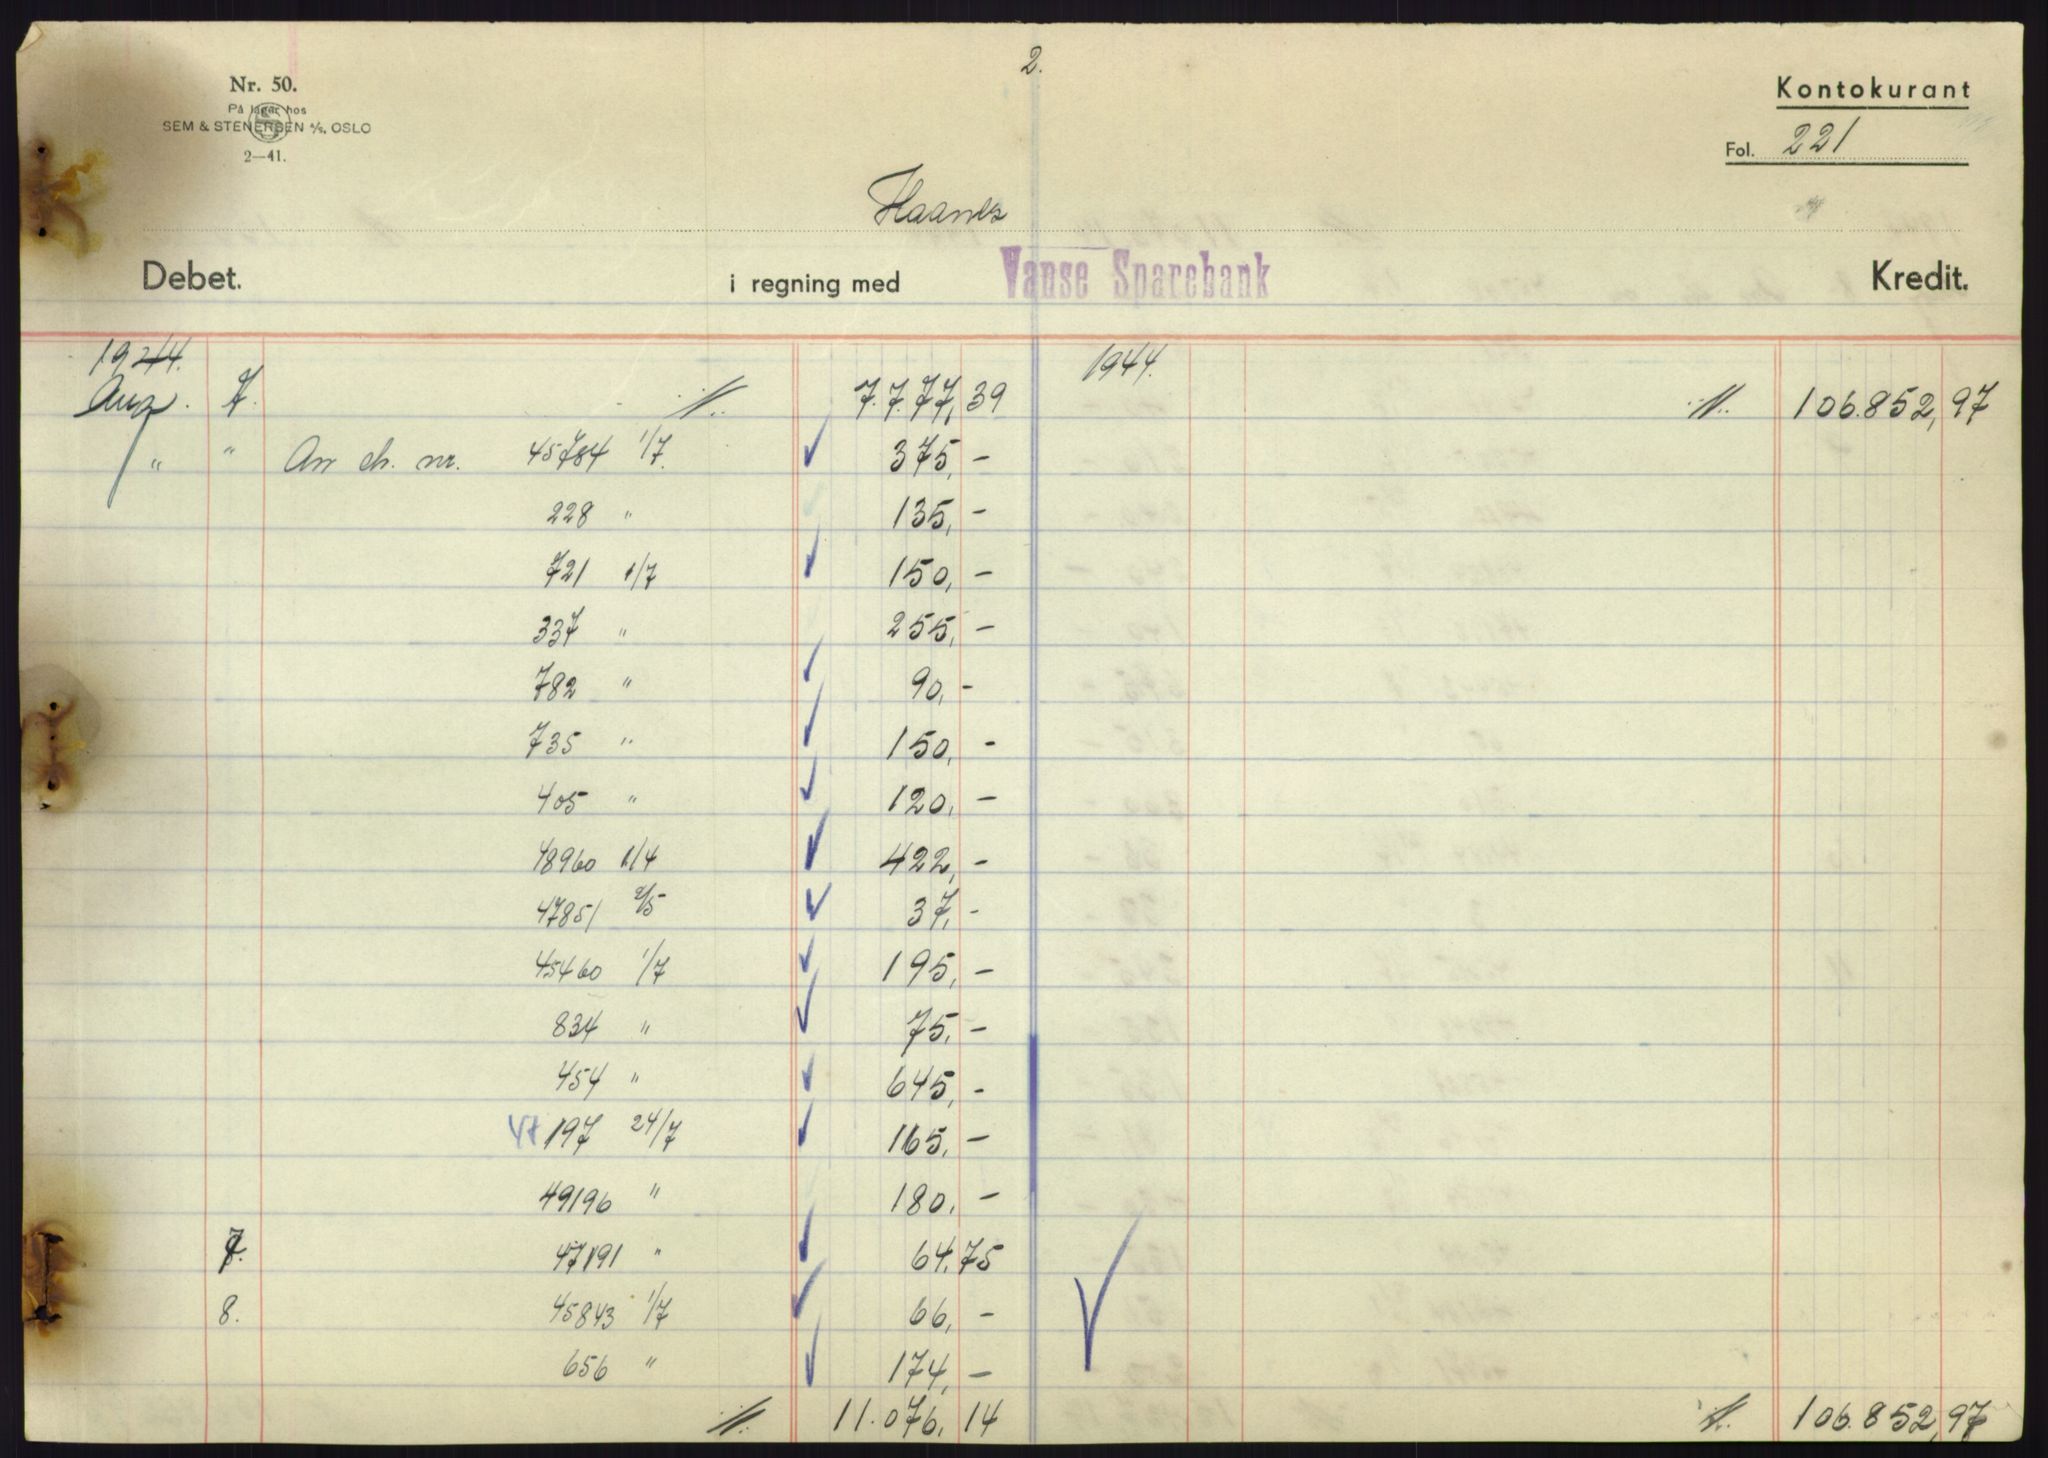 2.
Nr. 50.
På lager hos
SEM & STENERSEN A/S, OSLO
2—41.
Kontokurant
Fol. 221
Haanes
Debet. i regning med Vanse Sparebank Kredit.
1944. 1944.
Aug. 7. 7.777,39 106.852,97
" " An ch. nr. 45784 1/7. 375,-
228 " 135,-
721 1/7 150,-
337 " 255,-
782 " 90,-
735 " 150,-
405 " 120,-
48960 1/4 422,-
47851 2/5 37,-
45460 1/7 195,-
834 " 75,-
454 " 645,-
47197 24/7 165,-
49196 " 180,-
7. 47191 " 64,75
8. 45843 1/7 66,-
656 " 174,-
11.076,14 106.852,97